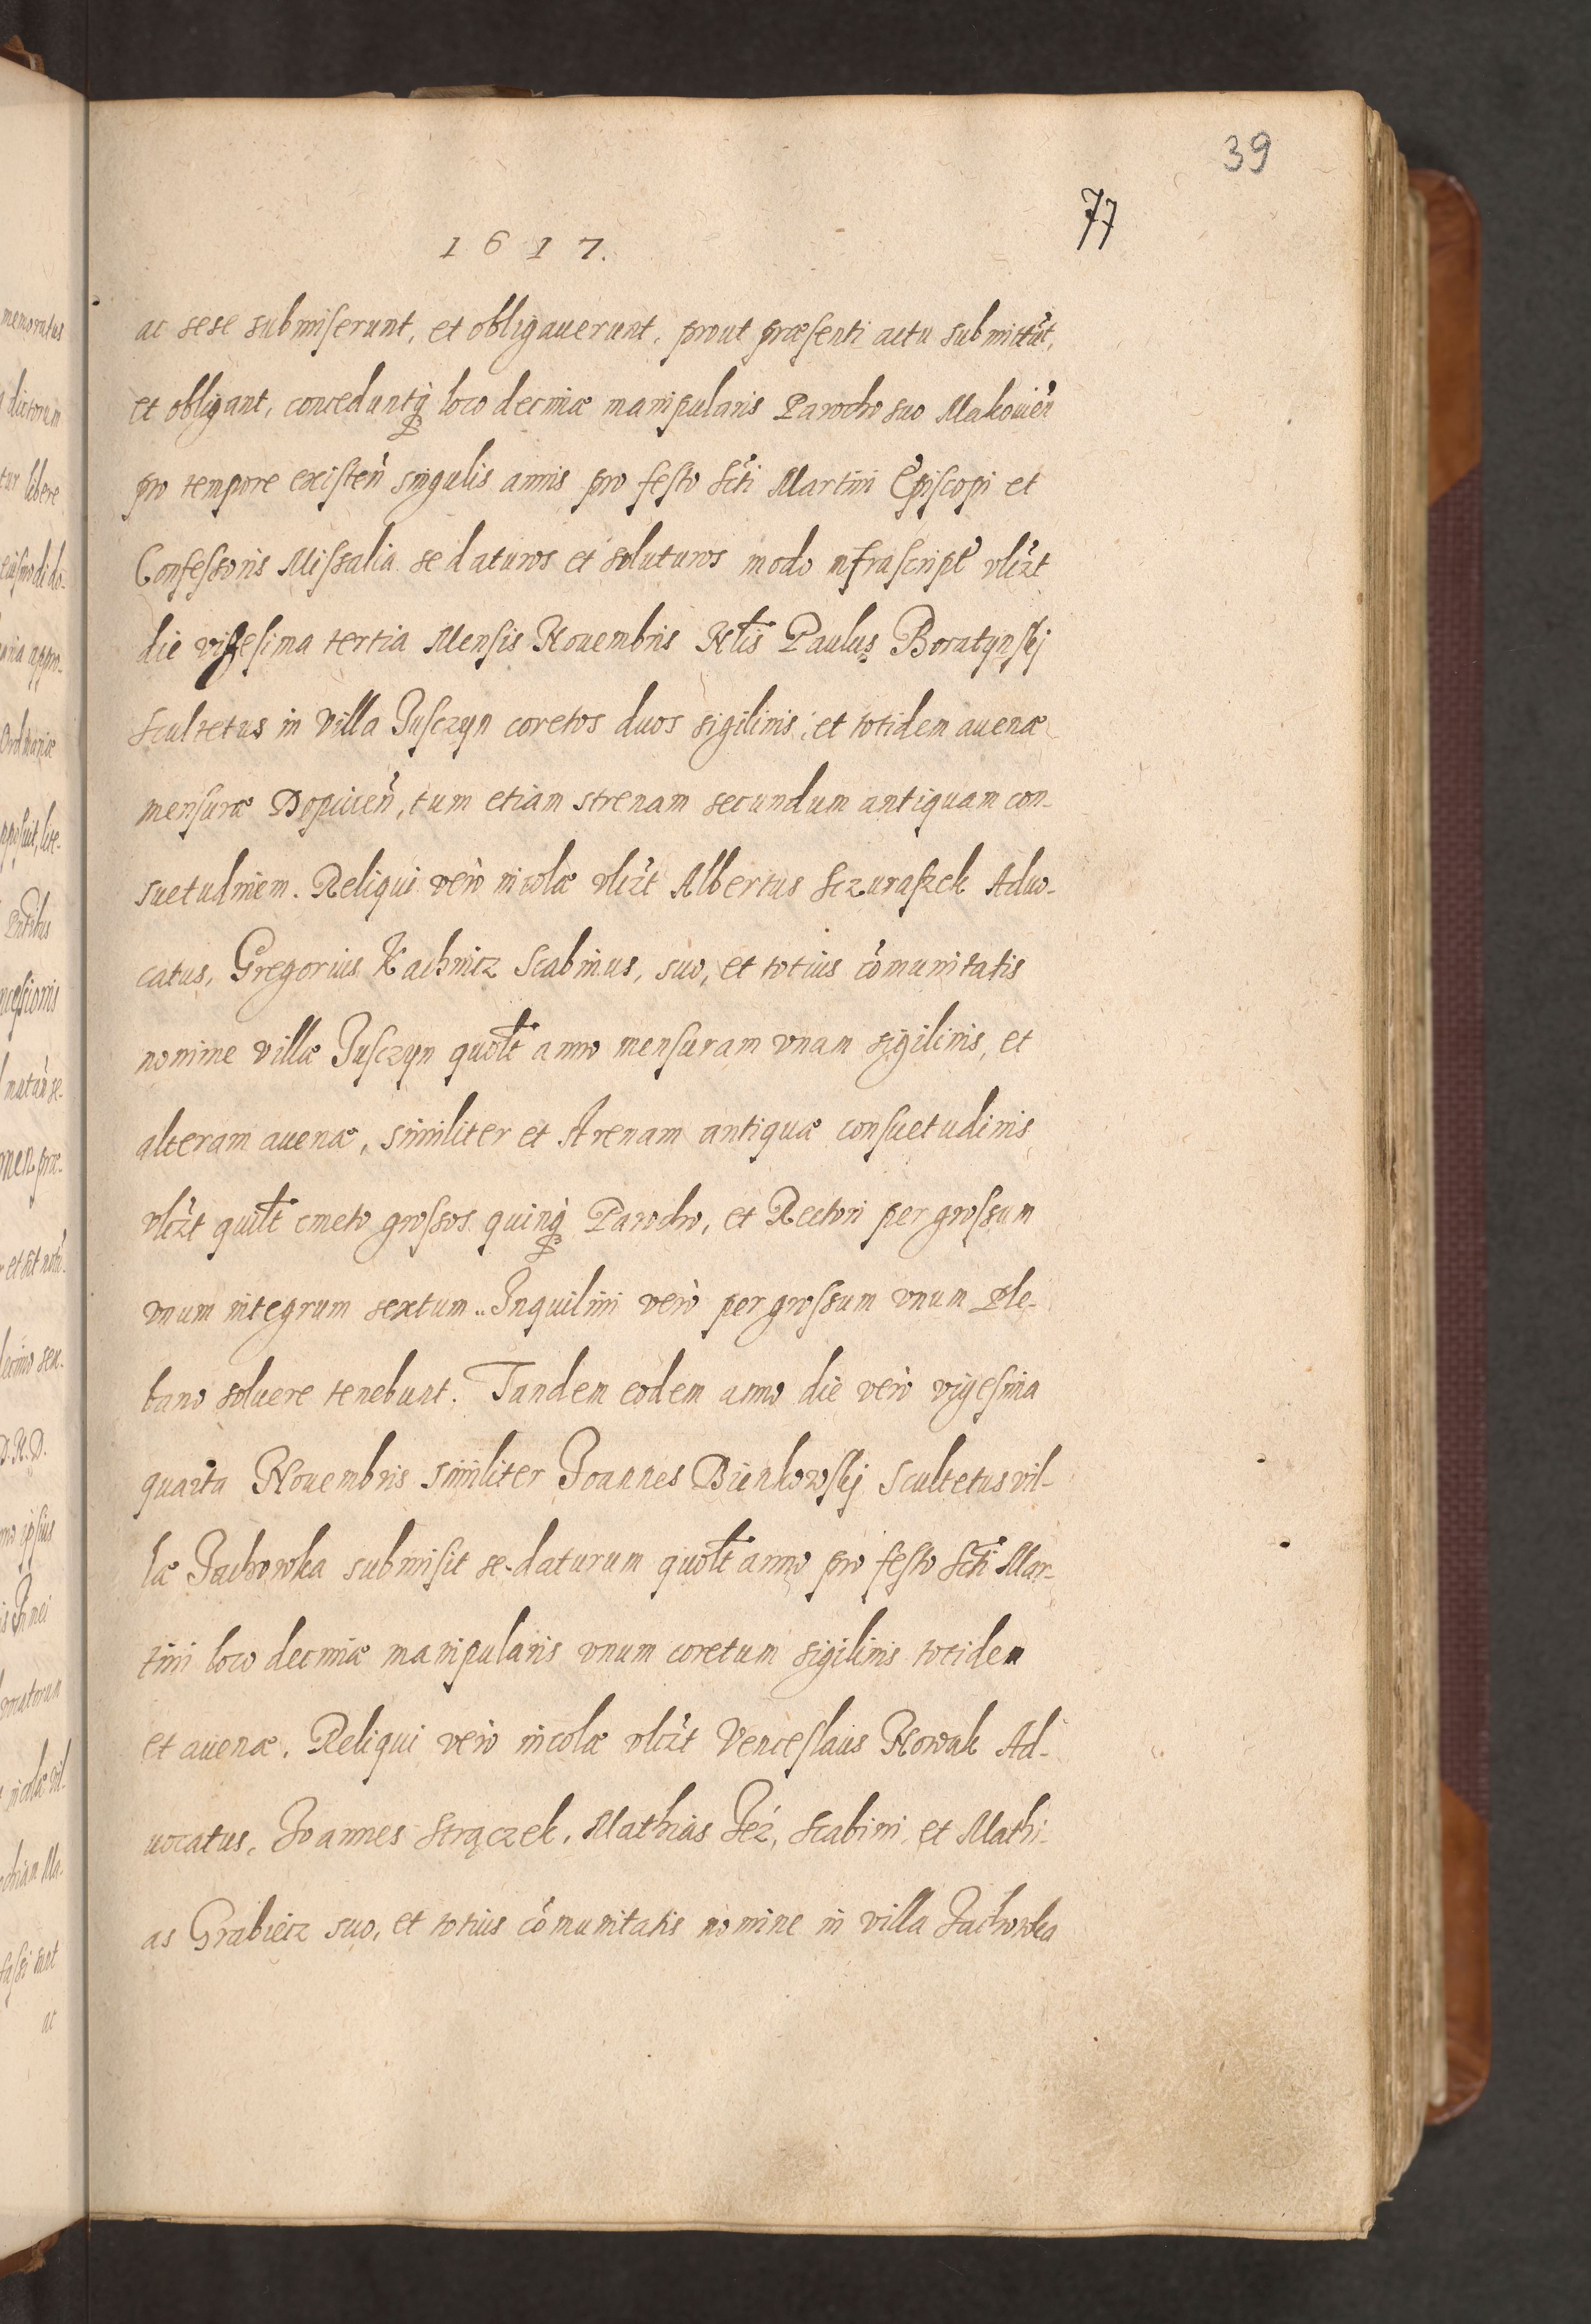 39
77
1617.
memoratus
ac sese submiserunt, et obligauerunt, prout præsenti actu submittũt,
et obligant, conceduntq̃ loco decimæ manipularis Parocho suo Makouieñ
pro tempore existeñ singulis annis pro festo Scti Martini Episcopi et
libere
Confessoris Missalia se daturos et soluturos modo infrascript̃ vlczt
die vigesima tertia Mensis Nouembris Nlis Paulus Boratynskj
Scultetus in Villa Juszczyn coretos duos sigilinis, et totidem auenæ
mensuræ Dopcicen̄, tum etiam strenam secundum antiquam con-
suetudinem. Reliqui verò incolæ vlczt Albertus Sczuraszek Aduo-
catus, Gregorius Kachnicz Scabinus, suo, et totius cõmunitatis
nomine villæ Jusczyn quolt anno mensuram vnam sigilinis, et
alteram auenæ, similiter et strenam antiquæ consuetudinis
vlczt quilt cmeto grossos quinq̃ Parocho, et Rectori per grossum
vnum integrum sextum. Inquilini verò per grossum vnum Ple-
bano soluere tenebunt. Tandem eodem anno die verò vigesima
quarta Nouembris similiter Joannes Bienkowskj Scultetus vil-
læ Jachowka submisit se daturum quolt anno pro festo Scti Mar-
tini loco decimæ manipularis vnum coretum sigilinis totidem
et auenæ. Reliqui verò incolæ vlczt Venceslaus Nowak Ad-
uocatus, Joannes Strączek, Mathias Jeż, Scabini, et Mathi-
as Grabiecz suo, et totius cõmunitatis nomine in villa Jachowka
ac